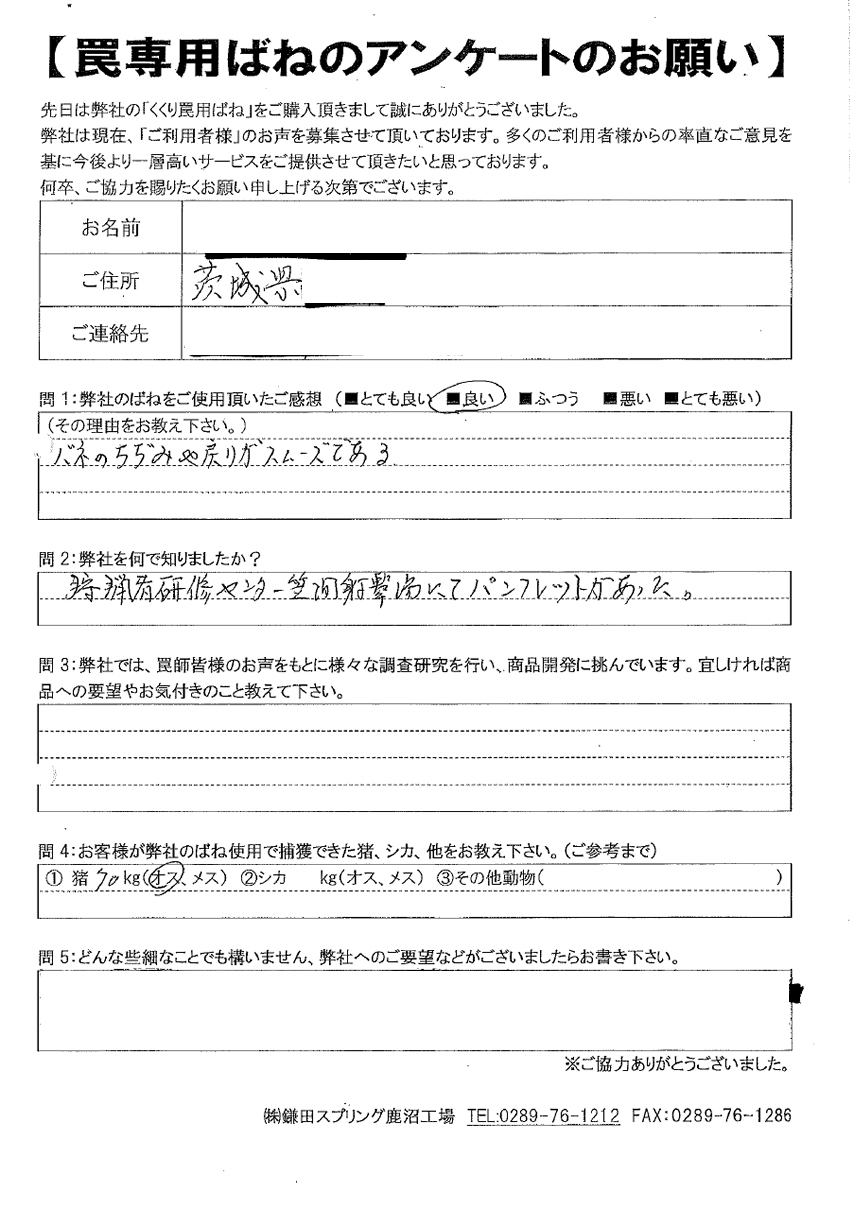 【罠専用ばねのアンケートのお願い】
先日は弊社の「くくり罠用ばね」をご購入頂きまして誠にありがとうございました。
弊社は現在、「ご利用者様」のお声を募集させて頂いております。多くのご利用者様からの率直なご意見を
基に今後より一層高いサービスをご提供させて頂きたいと思っております。
何卒、ご協力を賜りたくお願い申し上げる次第でございます。
お名前
ご住所 茨城県
ご連絡先
問1:弊社のばねをご使用頂いたご感想 (■とても良い ■良い ■ふつう ■悪い ■とても悪い)
(その理由をお教え下さい。)
バネのちぢみや戻りがスムーズである
問2:弊社を何で知りましたか?
狩猟者研修センター笠間射撃場にてパンフレットがあった。
問3:弊社では、罠師皆様のお声をもとに様々な調査研究を行い、商品開発に挑んでいます。宜しければ商
品への要望やお気付きのこと教えて下さい。
問4:お客様が弊社のばね使用で捕獲できた猪、シカ、他をお教え下さい。(ご参考まで)
① 猪 70kg(オス、メス) ②シカ kg(オス、メス) ③その他動物( )
問5:どんな些細なことでも構いません、弊社へのご要望などがございましたらお書き下さい。
※ご協力ありがとうございました。
㈱鎌田スプリング鹿沼工場 TEL:0289-76-1212 FAX:0289-76-1286